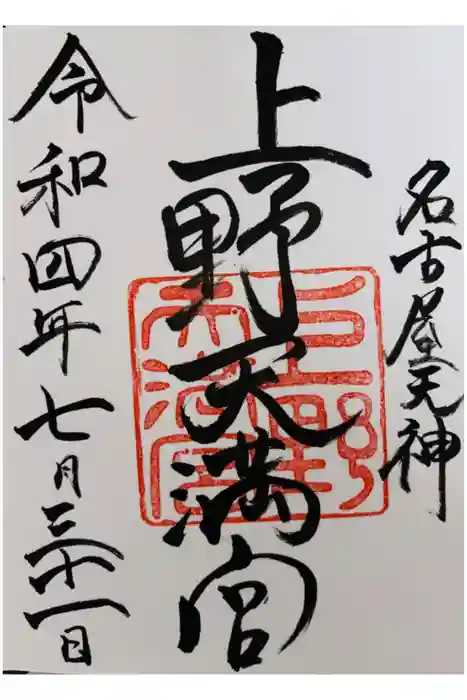 名古屋天神
上野天満宮
令和四年七月三十一日
上野
天満宮